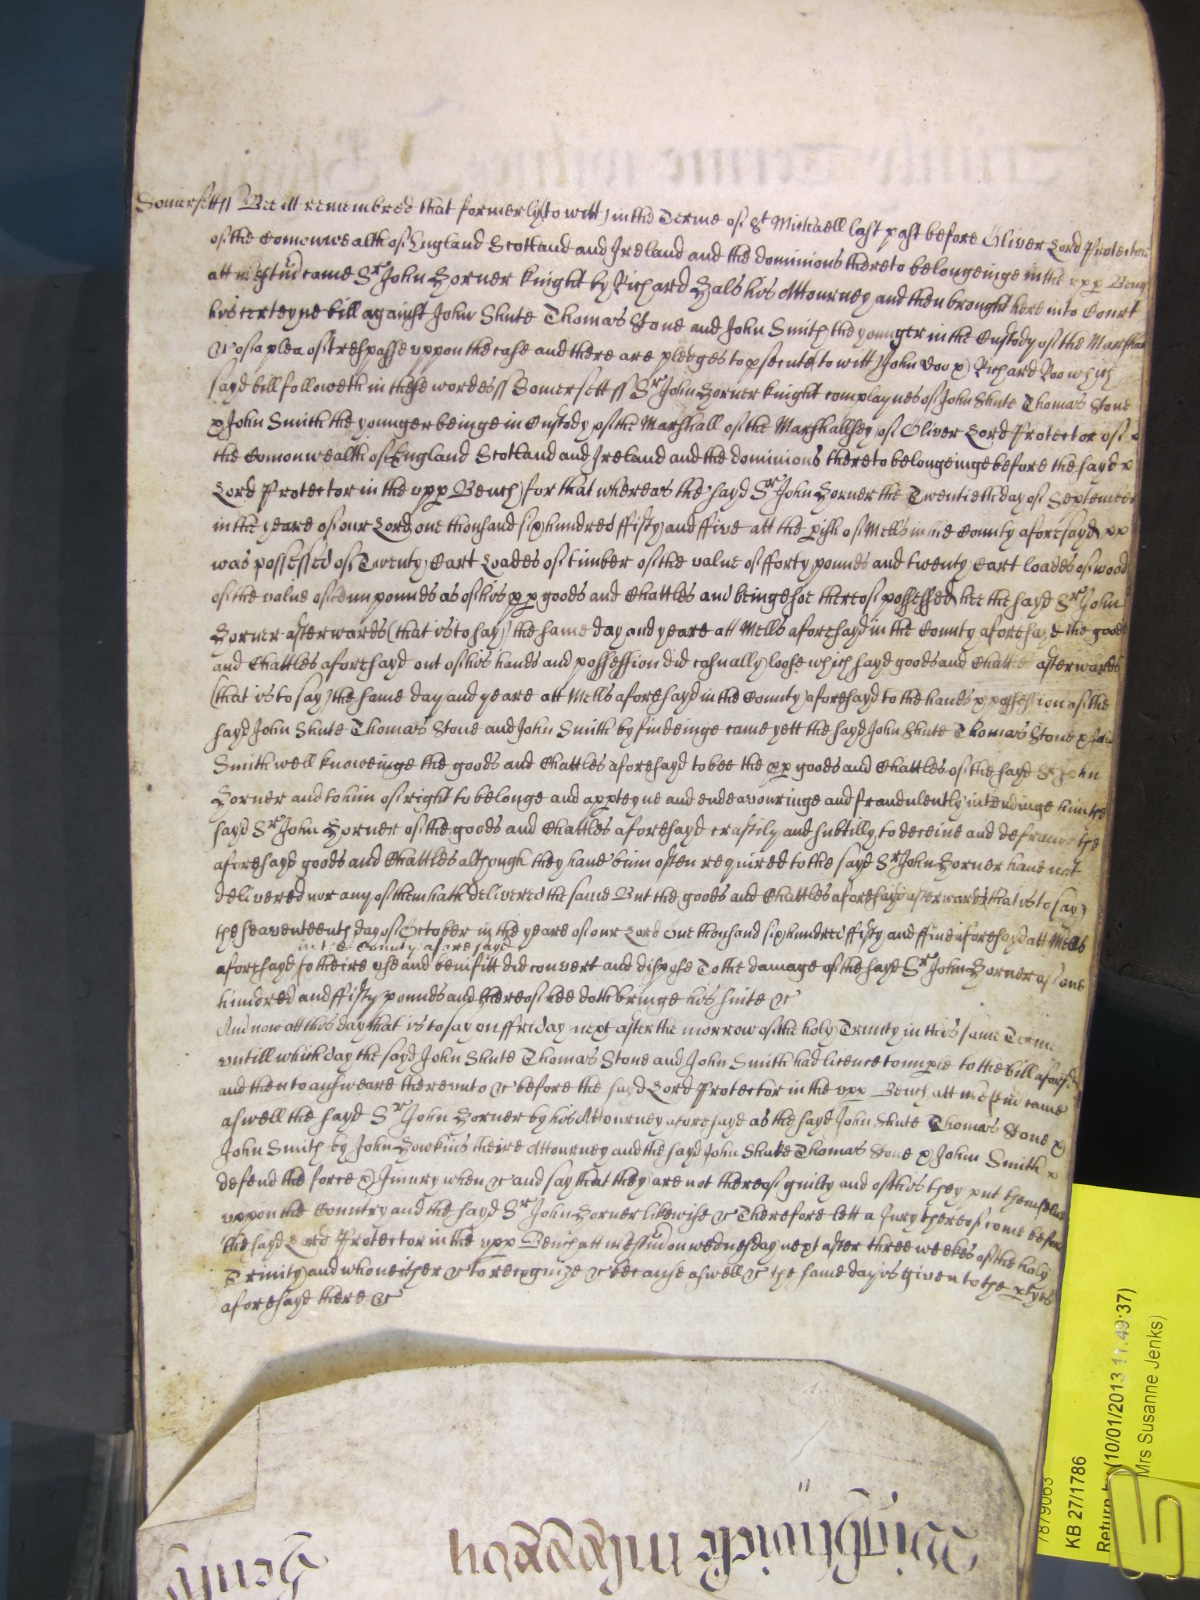 Somersett ss Bee itt remembred that formerly (to witt) in the Terme of St Michaell last past before Oliver Lord Protector
of the Comonwealth of England Scotland and Ireland and the dominions thereto belongeinge in the upp Bench
att Westm came Sr John Horner knight by Richard Hals his Attourney and then brought here into Court
his certeyne bill against John Shute Thomas Stone and John Smith the younger in the Custody of the Marshall
&c of a plea of trespasse uppon the case and there are pledges to psecute (to witt) John Doo & Richard Roo which
sayd bill followeth in these wordes ss Somersett ss Sr John Horner knight complaynes of John Shute Thomas Stone
& John Smith the younger beinge in Custody of the Marshall of the Marshallsey of Oliver Lord Protector of
the Comonwealth of England Scotland and Ireland and the dominions thereto belongeinge before the sayd
Lord Protector in the upp Bench for that whereas the sayd Sr John Horner the Twentieth day of September
in the yeare of our Lord one thousand six hundred ffifty and ffive att the pish of Mells in the County aforesayd
was possessed of Twenty Cart Loades of timber of the value of fforty pounds and twenty Cart loades of wood
of the value of tenn pounds as of his pp goods and Chattles and beinge soe thereof possessed hee the sayd Sr John
Horner afterwards (that is to say) the same day and yeare att Mells aforesayd in the County aforesayd the goods
and Chattles aforesayd out of his hands and possession did casually loose which sayd goods and Chattles afterwards
(that is to say) the same day and yeare att Mells aforesayd in the County aforesayd to the hands & possession of the
sayd John Shute Thomas Stone and John Smith by findeinge came yett the sayd John Shute Thomas Stone & John
Smith well knoweinge the goods and Chattles aforesayd to bee the pp goods and Chattles of the sayd Sr John
Horner and to him of right to belonge and appteyne and endeavouringe and fraudulently intendinge him the
sayd Sr John Horner of the goods and Chattles aforesayd craftily and subtilly to deceive and defraude the
aforesayd goods and Chattles although they have bim often required to the sayd Sr John Horner have not
delivered nor any of them hath delivered the same But the goods and Chattles aforesayd afterwards (that is to say)
the seaventeenth day of October in the yeare of our Lord One thousand six hundred ffifty and ffive aforesayd att Mells
in the County aforesayd
aforesayd to theire use and benifitt did convert and dispose To the damage of the sayd Sr John Horner of one
hundred and ffifty pounds and thereof hee doth bringe his suite &c
And now att this day that is to say on ffriday next after the morrow of the holy Trinity in this same Terme
untill which day the sayd John Shute Thomas Stone and John Smith had licence to imple to the bill aforesd
and then to answeare thereunto &c before the sayd Lord Protector in the upp Bench att Westm came
aswell the sayd Sr John Horner by his Attourney aforesayd as the sayd John Shute Thomas Stone &
John Smith by John Hawkins theire Attourney and the sayd John Shute Thomas Stone & John Smith
defend the force & Iniury when &c and say that they are not thereof guilty and of this they put themselves
uppon the Country and the sayd Sr John Horner likewise &c Therefore lett a Jury thereof come before
the sayd Lord Protector in the upp Bench att Westm on wednesday next after three weekes of the holy
Trinity and who neither &c to recognize &c because aswell &c the same day is given to the ptyes
aforesayd there &c
7879063
KB 27/1786
Return by (10/01/2013 11:49:37)
Mrs Susanne Jenks)